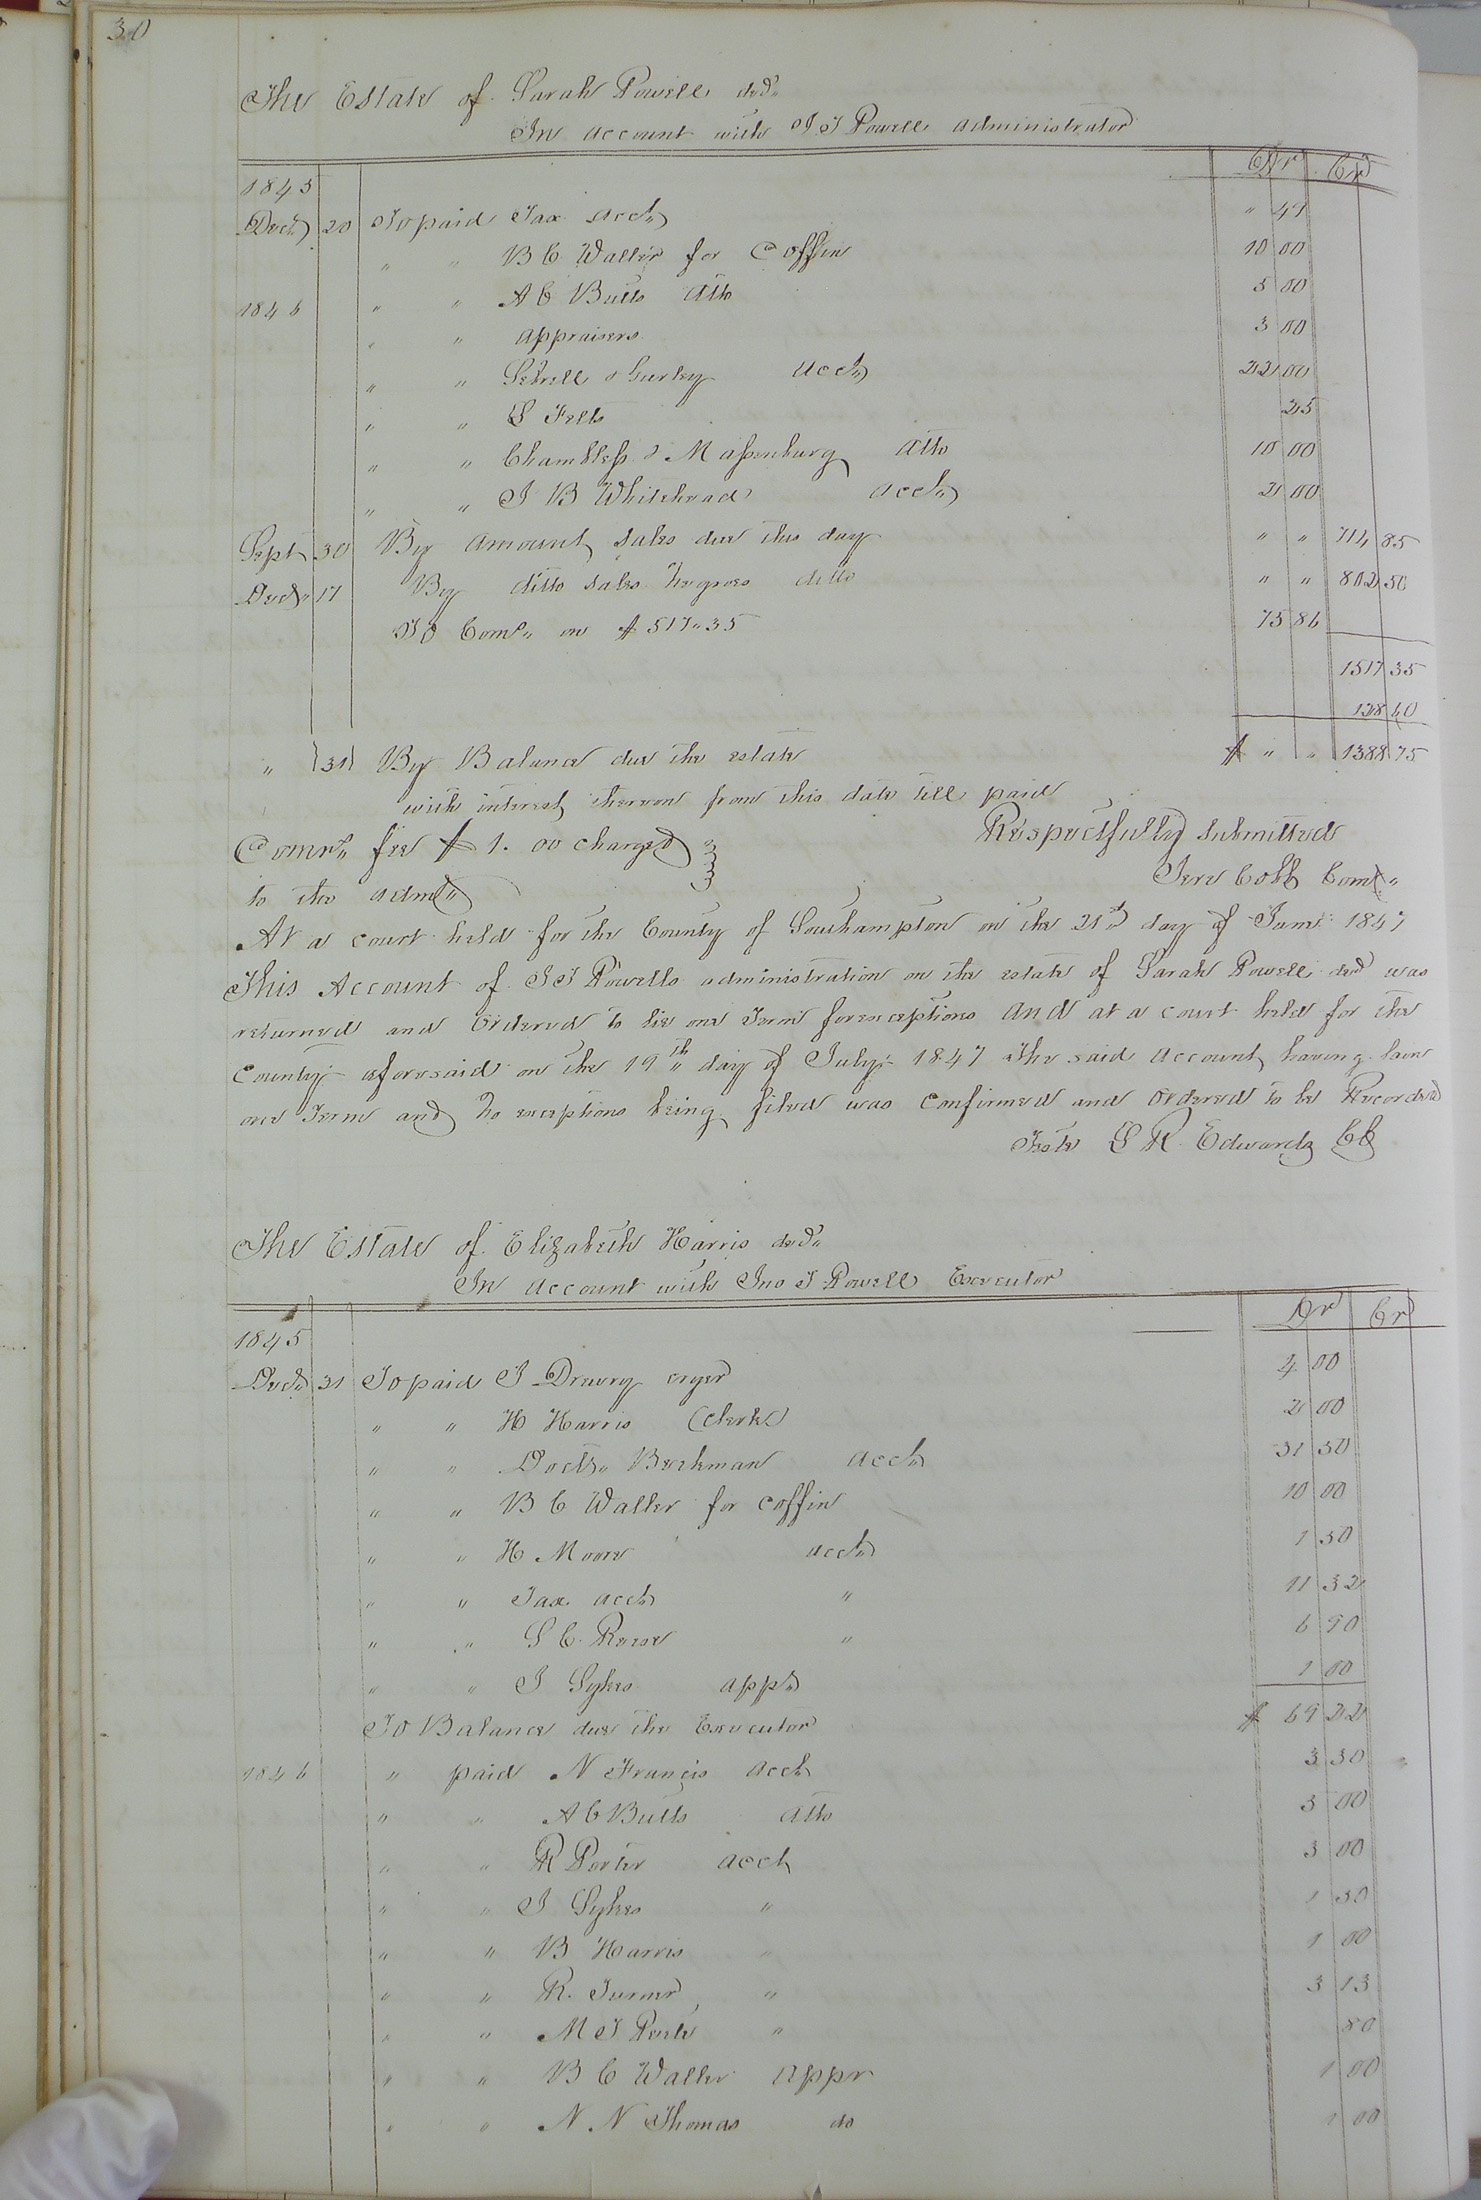 30
The Estate of Sarah Powell decd.
In account with J T Powell administrator
Dr Cr
1845
Decr 20 To paid Tax acct " 49
" " B C Waller for Coffin 10 00
1846 " " A C Butts Atto 5 00
" " appraisers 3 00
" " Sebrell & Gurley acct 22 00
" " S Felts 25
" " Chambless & Massenburg Atto 10 00
" " J B Whitehead acct 2 00
Sept 30 By amount sales due this day " " 714 85
Decr 17 By ditto sales negroes ditto " " 802 50
To Coms. on $ 517.35 75 86
1517 35
128 60
" 31 By Balance due the estate $ " " 1388 75
with interest thereon from this date till paid
Comr. fee $ 1.00 charged Respectfully submitted
to the adm. Jere Cobb Com.
At a court held for the County of Southampton on the 21st day of June 1847
This Account of J T Powells administration on the estate of Sarah Powell decd was
returned and Ordered to lie one Term for exceptions And at a court held for the
County aforesaid on the 19th day of July 1847 The said Account having lain
one Term and no exceptions being filed was Confirmed and Ordered to be Recorded
Teste L R Edwards CC
The Estate of Elizabeth Harris decd.
In account with Jno T Powell Executor
Dr Cr
1845
Decr 31 To paid J Drewry cryer 4 00
" " H Harris (clerk) 2 00
" " Doctr. Beekman acct 31 50
" " B C Waller for coffin 10 00
" " H Moore acct 1 50
" " Tax acct " 11 32
" " S C Reese " 6 90
" " J Sykes appr 1 00
To Balance due the Executor $ 69 22
1846 " paid N Francis acct 3 30
" " A C Butts Atto 5 00
" " R Porter acct 3 00
" " J Sykes " 1 50
" " B Harris " 1 00
" " R. Turner " 3 13
" " M T Peete " 80
" " B C Waller Appr 1 00
" " N N Thomas do 1 00